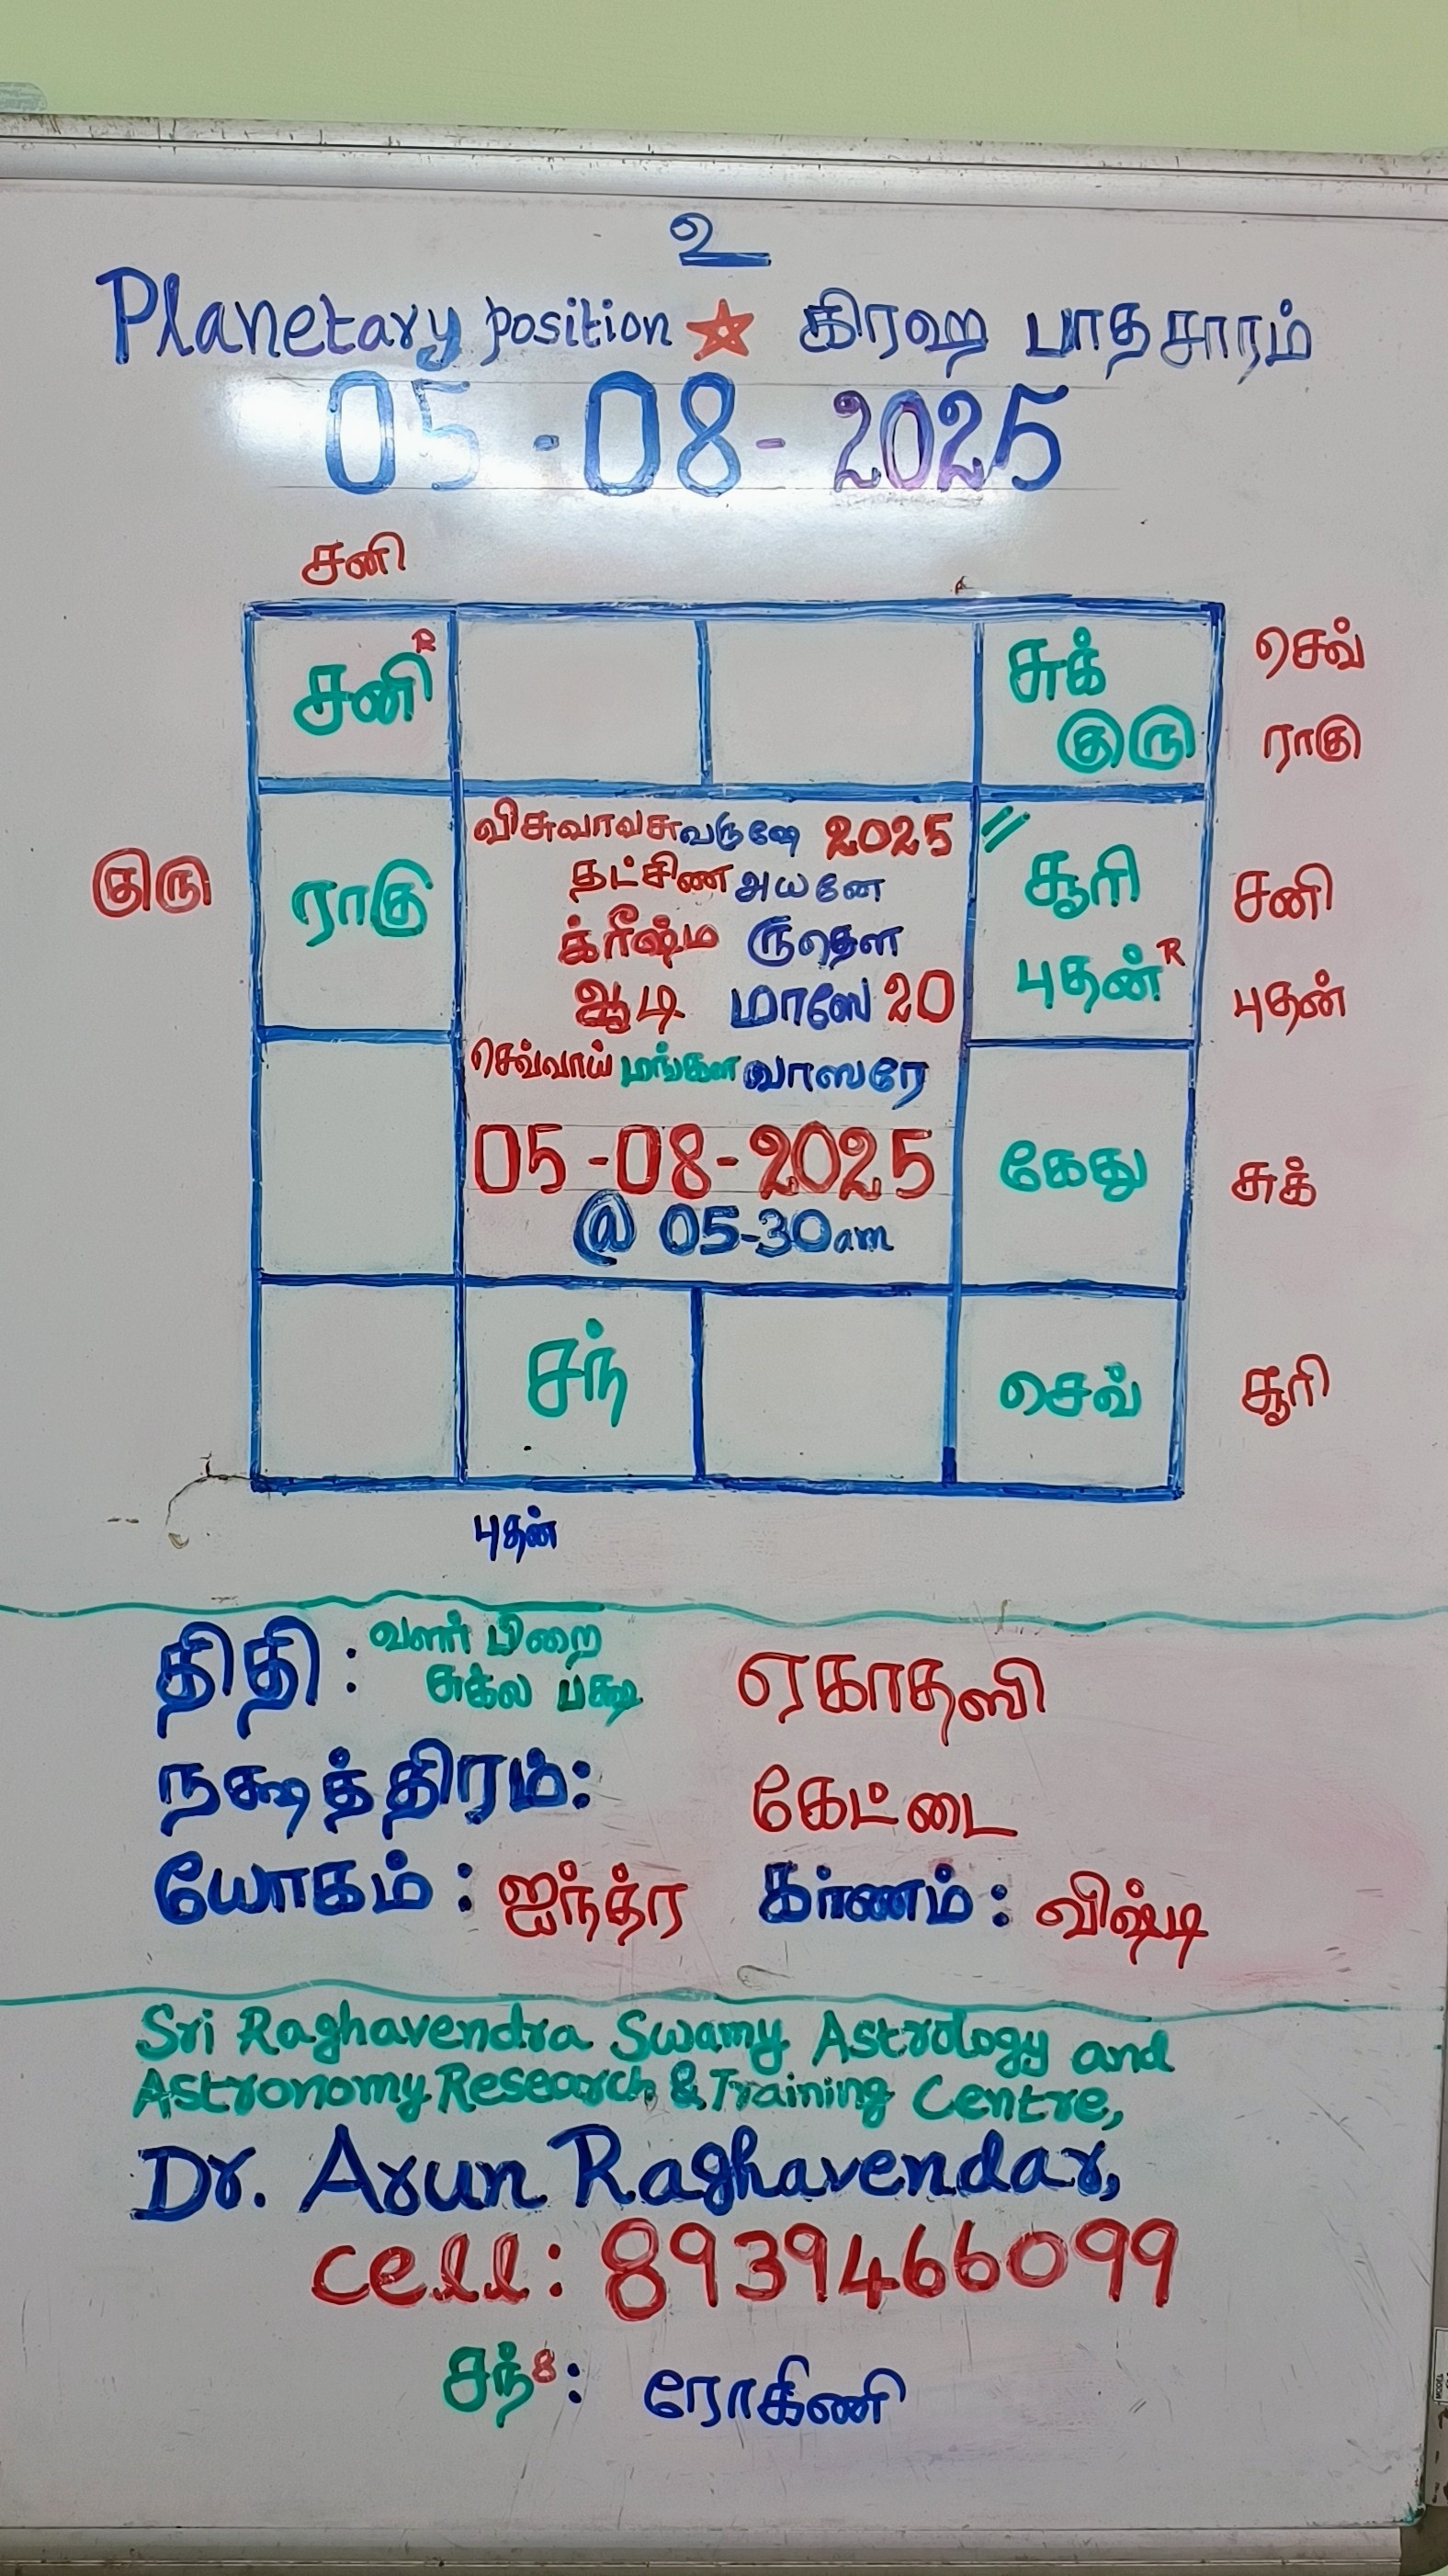 உ
Planetary position கிரஹ பாதசாரம்
05-08-2025
சனி
சனி R
சுக்
குரு
செவ்
ராகு
குரு
ராகு
விசுவாவசு வருஷே 2025
தட்சிண அயனே
க்ரீஷ்ம ருதௌ
ஆடி மாஸே 20
செவ்வாய் மங்கள வாஸரே
05-08-2025
@ 05-30am
சூரி
புதன் R
சனி
புதன்
கேது
சுக்
சந்
செவ்
சூரி
புதன்
திதி : வளர் பிறை
சுக்ல பக்ஷ ஏகாதஸி
நக்ஷத்திரம்: கேட்டை
யோகம் : ஐந்த்ர கர்ணம் : விஷ்டி
Sri Raghavendra Swamy Astrology and
Astronomy Research & Training Centre,
Dr. Arun Raghavendar,
cell: 8939466099
சந் 8 : ரோகிணி